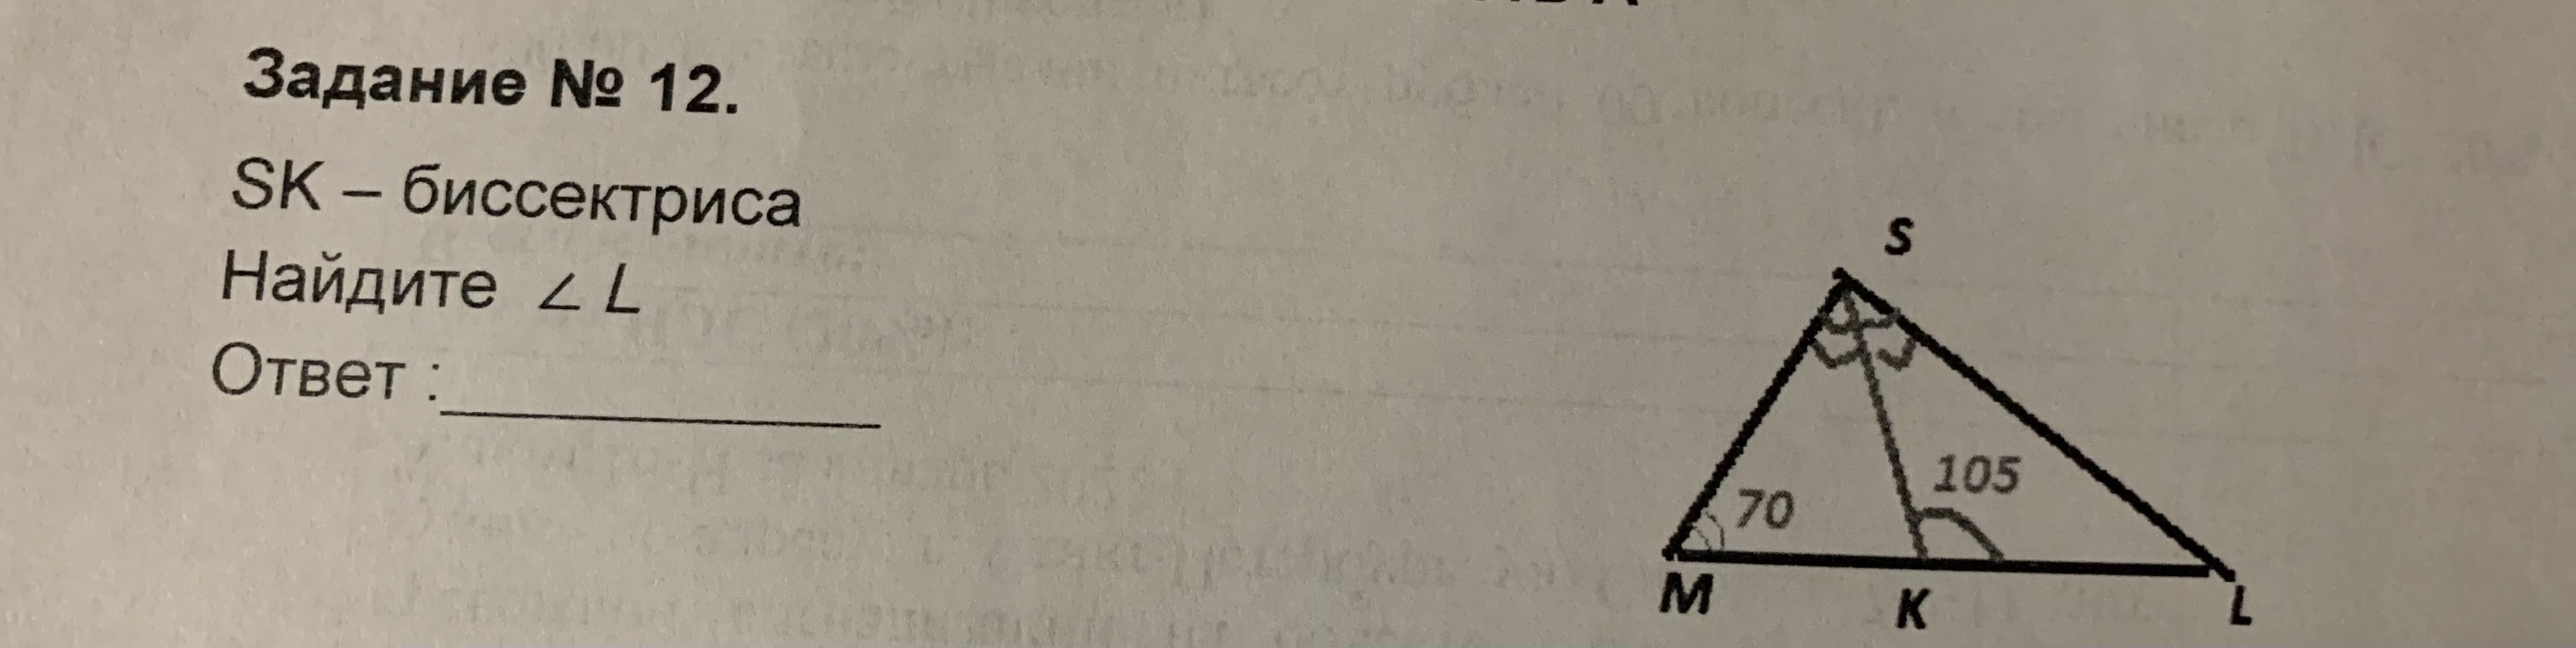 Задание № 12.
SK – биссектриса
Найдите ∠ L
Ответ :____________
S
105
70
M
K
L